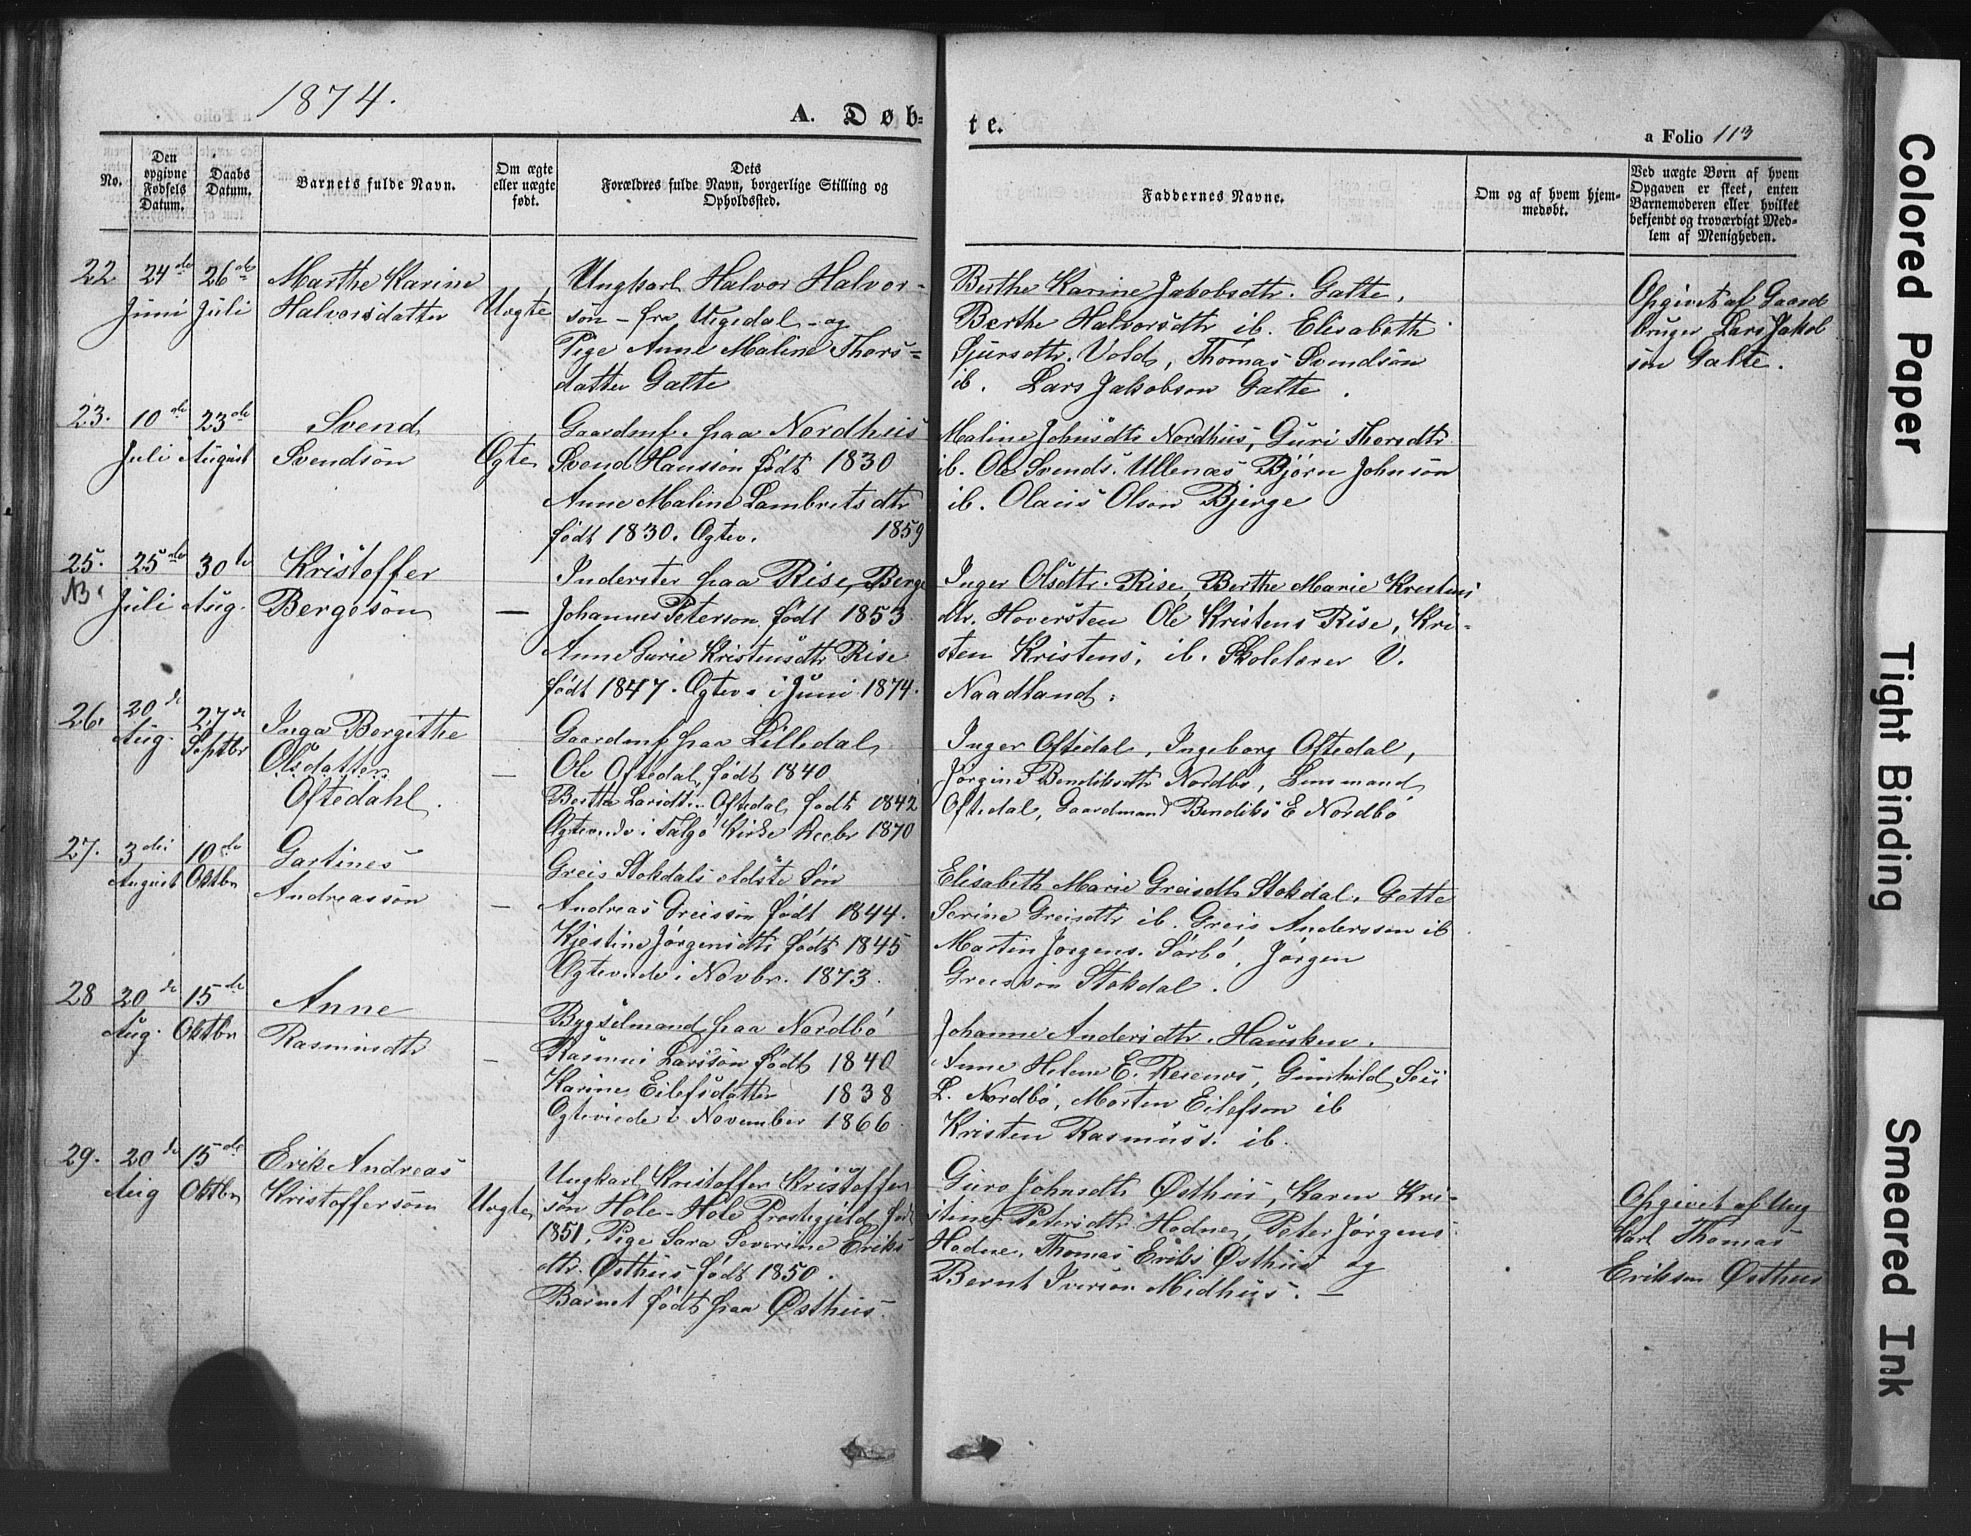 1874.
A. Døb-
te.
a Folio 113
No.
Den opgivne Fødsels Datum.
Daabs Datum.
Barnets fulde Navn.
Om ægte eller uægte født.
Dets Forældres fulde Navn, borgerlige Stilling og Opholdssted.
Faddernes Navne.
Om og af hvem hjemmedøbt.
Ved uægte Børn af hvem Opgaven er skeet, enten Barnemoderen eller hvilket bekjendt og troværdigt Medlem af Menigheden.
22
24de Juni
26de Juli
Marthe Karine
Halvorsdatter
Uægte
Ungkarl Halvor Halvor-
søn - fra Vigedal - og
Pige Anne Maline Thors-
datter Galte
Berthe Karine Jakobsdtr. Galte,
Berthe Halvorsdtr ib. Elisabeth
Sjursdtr. Vold, Thomas Svendsøn
ib. Lars Jakobsøn Galte.
Opgivet af Gaard
bruger Lars Jakob
søn Galte.
23.
10de Juli
23de August
Svend
Svendsøn
Ægte
Gaardmf. paa Nordhus
Svend Hanssøn født 1830
Anne Maline Lambrets dtr
født 1830. Ægtev. 1859
Maline Johnsdtr Nordhus, Guri Thorsdtr
ib. Ole Svends. Ullenæs Bjørn Johnsøn
ib. Olaus Olson Bjerge
25.
NB.
25de Juli
30te Aug.
Kristoffer
Bergesøn
—
Inderster paa Rise, Berge
Johannes Peterson født 1853
Anne Gurie Kristensdtr Rise
født 1847. Ægtev. i Juni 1874.
Inger Olsdtr. Rise, Berthe Marie Kristens
dtr. Hoversten Ole Kristens Rise, Kri-
sten Kristens. ib. Skolelærer V.
Naadland.
26.
20de Aug.
27de Septbr
Inga Bergithe
Olsdatter
Oftedahl.
—
Gaardmf paa Lilledal
Ole Oftedal født 1840
Berthe Larsdtr. Oftedal født 1842
Ægteviede i Talgø Kirke Decbr 1870
Inger Oftedal, Ingeborg Oftedal,
Jørgine Bendiksdtr Nordbø, Lensmand
Oftedal, Gaardmand Bendiks E Nordbø
27.
3die August
10de Oktbr
Gartines
Andreassøn
—
Greis Stokdals eldste Søn
Andreas Greissøn født 1844.
Kjestine Jørgensdtr født 1845
Ægteviede i Novbr. 1873.
Elisabeth Marie Greisdtr Stokdal. Gette
Serine Greisdtr ib. Greis Anderssen ib
Martin Jørgens. Sørbø, Jørgen
Greisson Stokdal.
28
20de Aug.
15de Oktbr
Anne
Rasmusdtr
—
Bygselmand paa Nordbø
Rasmus Larssøn født 1840
Karine Eilefsdatter 1838
Ægteviede i November 1866
Johanne Andersdtr. Hausken.
Anne Helene E. Resenes, Gunhild
L. Nordbø, Morten Eilefsøn ib
Kristen Rasmuss. ib.
29.
20de Aug
15de Oktbr
Erik Andreas
Kristoffersøn
Uægte
Ungkarl Kristoffer Kristoffer
søn Hole - Hole Prestegjeld, født
1851, Pige Sara Severine Eriks
dtr. Østhus født 1850.
Barnet født paa Østhus.
Guro Johnsdtr Østhus, Karen Kri-
stine Petersdtr Hodne, Peter Jørgens
Hodne, Thomas Eriks Østhus og
Bernt Iverson Midhus. —
Opgivet af Ung
karl Thomas
Erikson Østhus
Colored Paper
Tight Binding
Smeared Ink